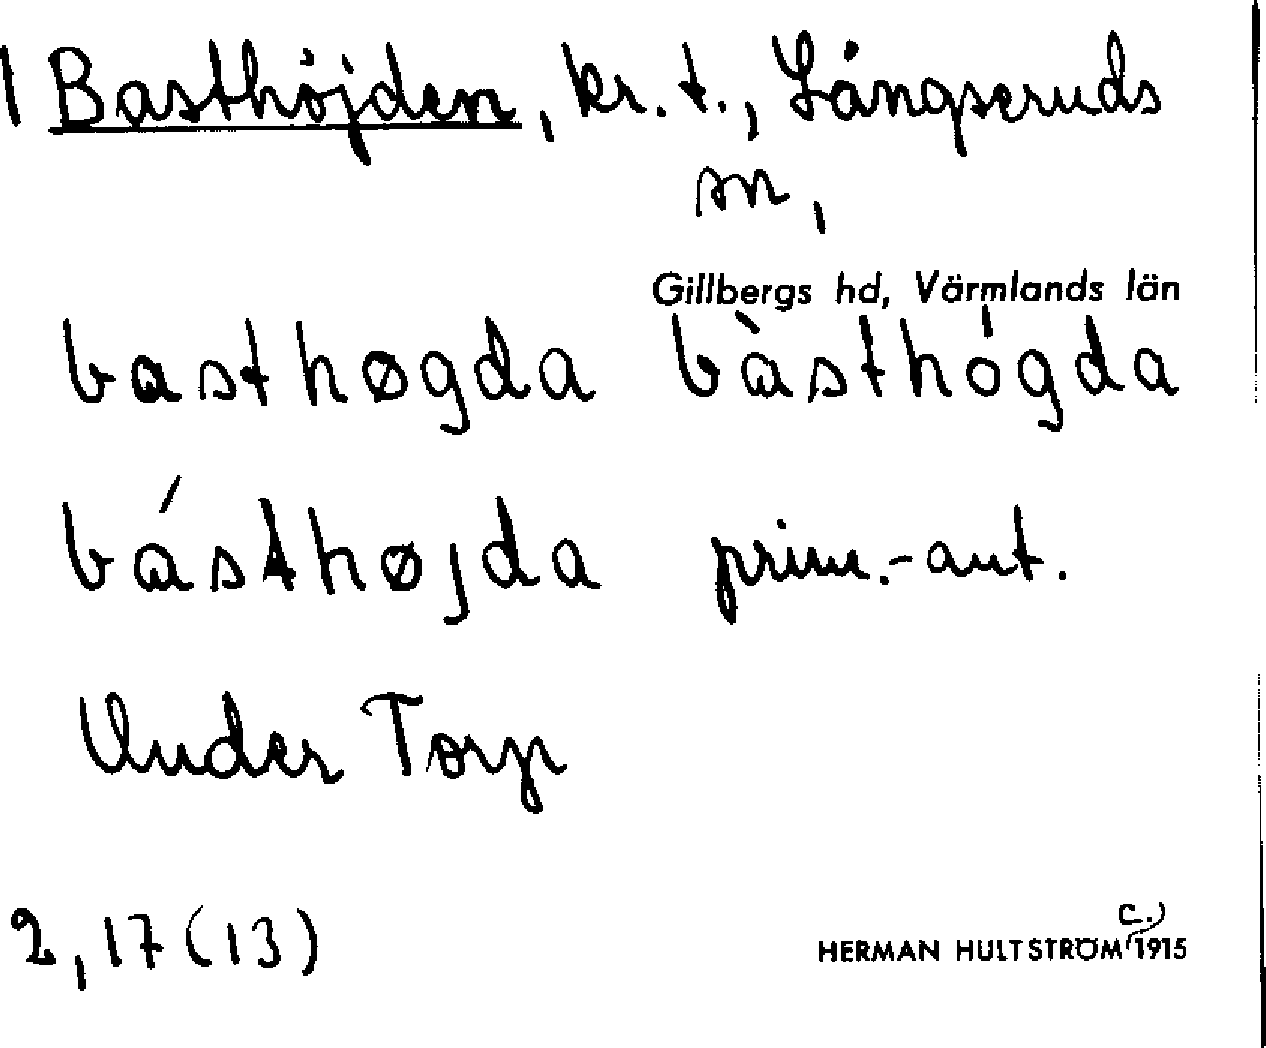 1 Basthöjden, kr. t., Långseruds
sn,
Gillbergs hd, Värmlands län
basthøgda bàsthógda
básthøjda prim.-ant.
Under Torp
2, 17 (13)
c.)
HERMAN HULTSTRÖM 1915